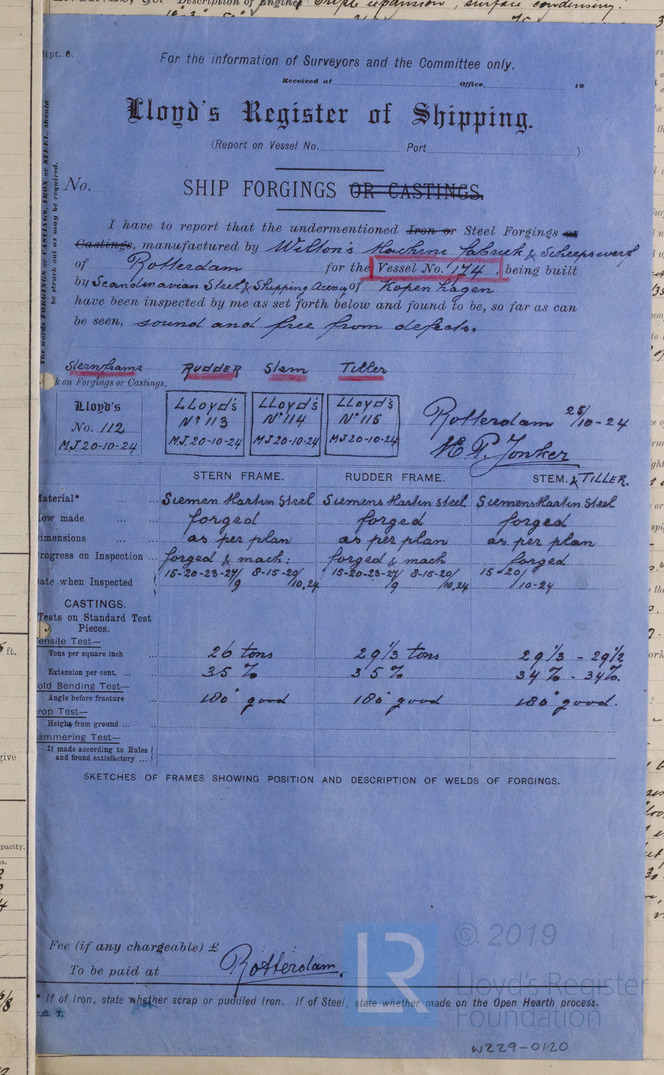 Description of Engines Triple expansion, surface condensing.
Rpt. 6.
For the information of Surveyors and the Committee only.
Received at Office 19
Lloyd's Register of Shipping.
(Report on Vessel No. Port )
No. SHIP FORGINGS OR CASTINGS.
The words FORGINGS or CASTINGS, IRON or STEEL, should
be struck out as may be required.
I have to report that the undermentioned Iron or Steel Forgings or
Castings, manufactured by Wilton's Machine fabriek & Scheepswerf
of Rotterdam for the Vessel No. 174 being built
by Scandinavian Steel & Shipping Agency of Kopenhagen
have been inspected by me as set forth below and found to be, so far as can
be seen, sound and free from defects.
Sternframe RUDDER Stem Tiller
k on Forgings or Castings.
Lloyd's LLoyd's LLoyd's LLoyd's
No. 112 No 113 No 114 No 115
MJ 20-10-24 MJ 20-10-24 MJ 20-10-24 MJ 20-10-24
Rotterdam 25/10-24
M.P. Jonker
STERN FRAME. RUDDER FRAME. STEM. & TILLER.
Material* Siemen Martin Steel Siemens Martin Steel Siemens Martin Steel
ow made forged forged forged
imensions as per plan as per plan as per plan
rogress on Inspection forged & mach: forged & mach forged
ate when Inspected 15-20-23-27/9 8-15-20/10.24 15-20-23-27/9 8-15-20/10.24 15-20/10-24
CASTINGS.
Tests on Standard Test
Pieces.
ensile Test—
Tons per square inch 26 tons 29 1/3 tons 29 1/3 - 29 1/2
Extension per cent. 35 % 35 % 34 % - 34 %.
old Bending Test—
Angle before fracture 180° good 180° good 180° good.
rop Test—
Height from ground
ammering Test—
If made according to Rules
and found satisfactory
SKETCHES OF FRAMES SHOWING POSITION AND DESCRIPTION OF WELDS OF FORGINGS.
Fee (if any chargeable) £
To be paid at Rotterdam.
* If of Iron, state whether scrap or puddled Iron. If of Steel, state whether made on the Open Hearth process.
LR © 2019
Lloyd's Register
Foundation
W229-0120